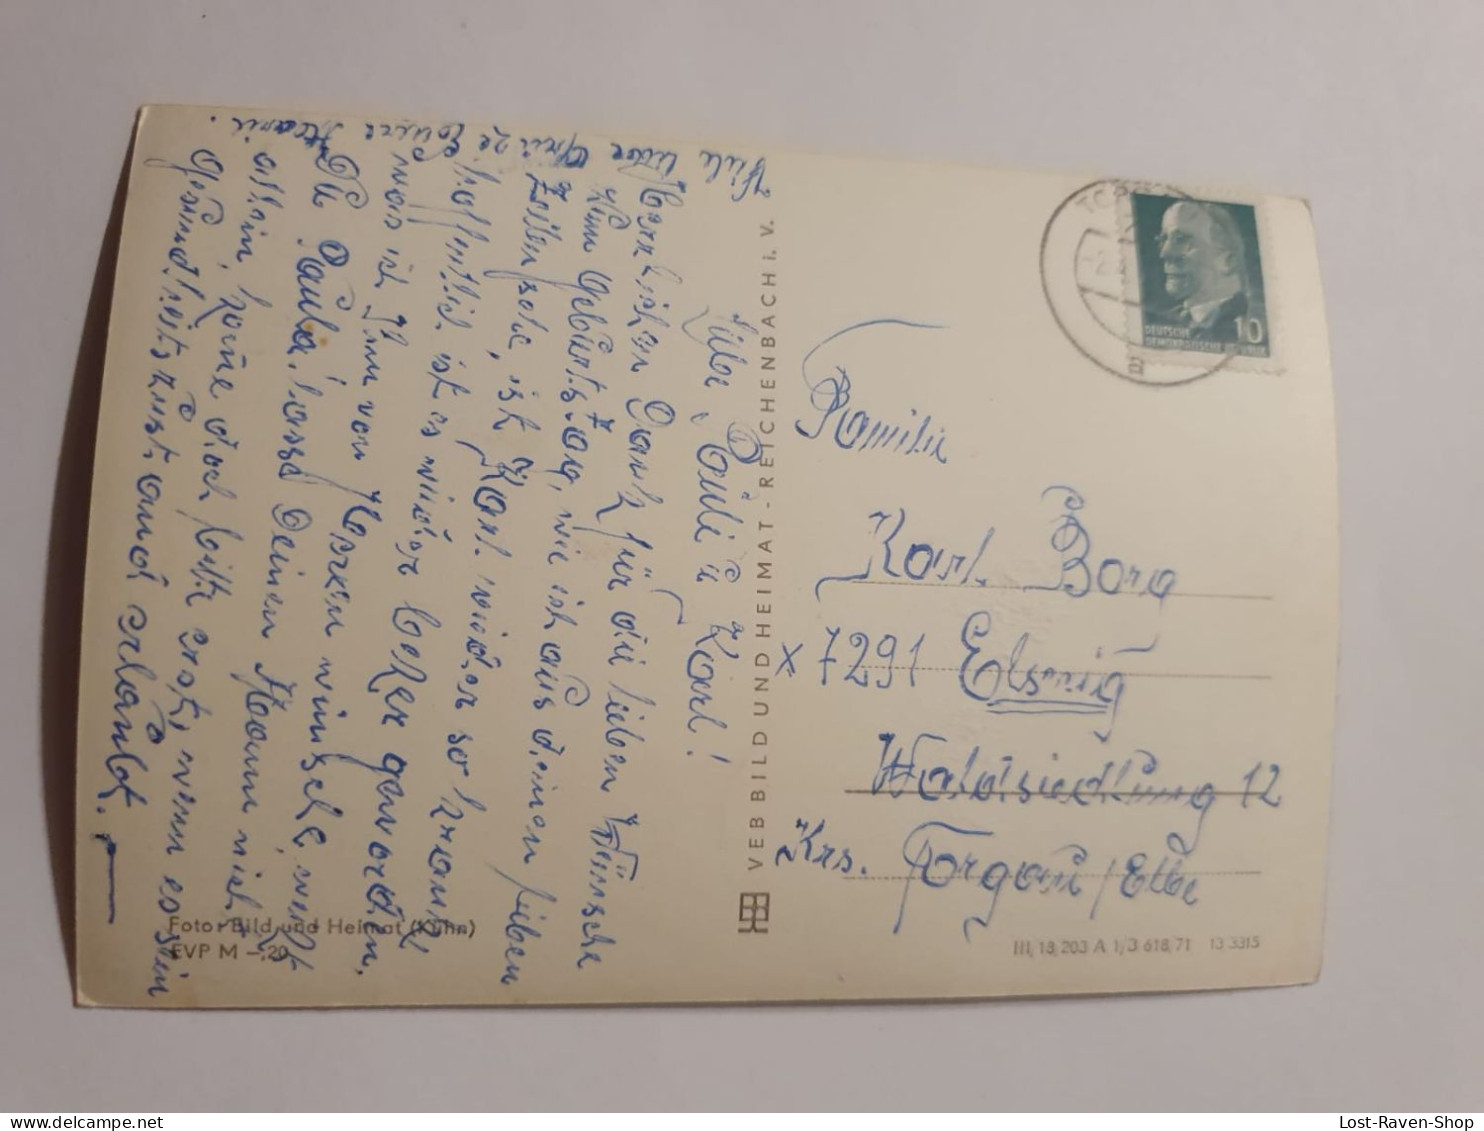 Liebe Pauli u. Karl!
Herzlichen Dank für die lieben Wünsche
zum Geburtstag, wie ich aus deinen lieben
Zeilen sehe, ist Karl wieder so krank,
hoffentlich ist es wieder besser geworden,
was ich Ihm von Herzen wünsche, und
Du Paula, lasse Deinen Mann nicht
allein, komme doch bitte erst, wenn es sein
Gesundheitszustand erlaubt.
Viele liebe Grüße Eure
VEB BILD UND HEIMAT · REICHENBACH i. V.
Foto: Bild und Heimat (Kühn)
EVP M -,20
TOR
DEUTSCHE
DEMOKRATISCHE
10
Familie
Karl Borg
x 7291 Elsnig
Waldsiedlung 12
Krs. Torgau/Elbe
III, 18, 203 A 1, 3 618, 71 13 3315
Lost-Raven-Shop